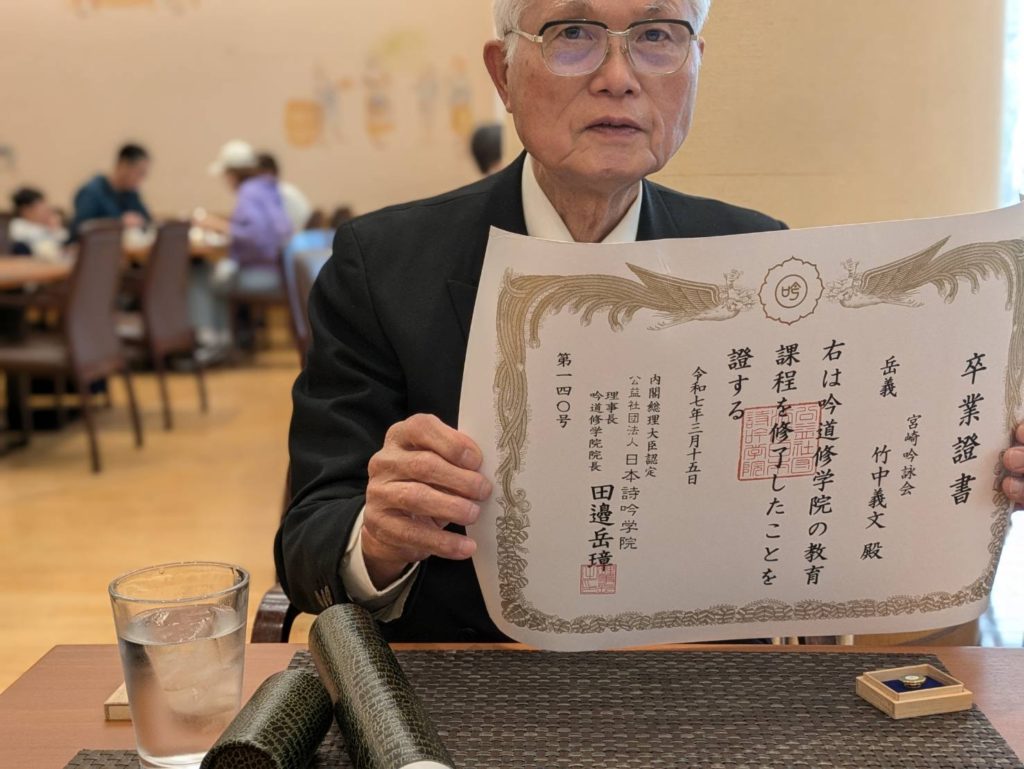 吟
卒業證書
宮崎吟詠会
岳義 竹中義文 殿
右は吟道修学院の教育
課程を修了したことを
證する
令和七年三月十五日
内閣総理大臣認定
公益社団法人 日本詩吟学院
理事長
吟道修学院院長 田邉岳璋
第一四〇号